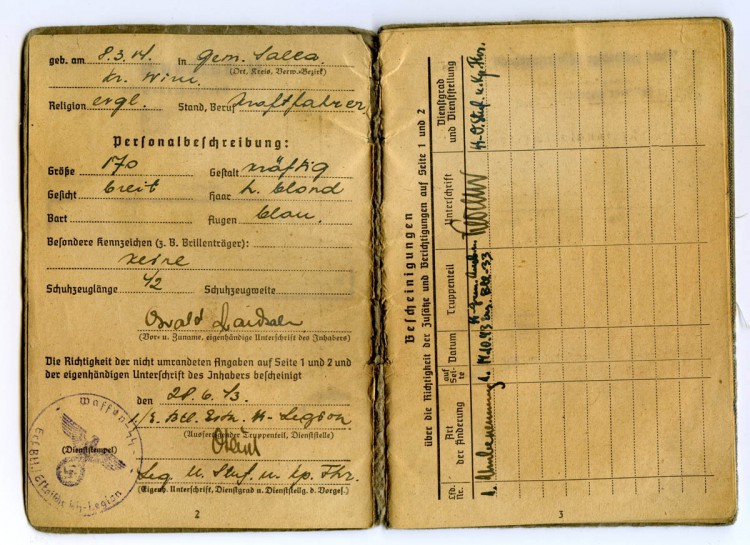 geb. am 8.3.14 in Gem. Salla
(Ort, Kreis, Verw.-Bezirk)
Kr. Wiru
Religion evgl. Stand, Beruf Kraftfahrer
Personalbeschreibung:
Größe 170 Gestalt kräftig
Gesicht breit Haar h. blond
Bart Augen blau.
Besondere Kennzeichen (z. B. Brillenträger):
keine
Schuhzeuglänge 42 Schuhzeugweite
Oswald
(Vor- u. Zuname, eigenhändige Unterschrift des Inhabers)
Die Richtigkeit der nicht umrandeten Angaben auf Seite 1 und 2 und
der eigenhändigen Unterschrift des Inhabers bescheinigt
den 28.6.43
1./E. Btl. Estn. SS-Legion
(Ausfertigender Truppenteil, Dienststelle)
Waffen-SS
(Dienststempel)
Leg. U. Stuf. u. Kp. Fhr.
(Eigenh. Unterschrift, Dienstgrad u. Dienststellg. d. Vorges.)
2
Bescheinigungen
über die Richtigkeit der Zusätze und Berichtigungen auf Seite 1 und 2
Lfd. Nr.
Art der Änderung
auf Sei- te
Datum
Truppenteil
Unterschrift
Dienstgrad und Dienststellung
1. Umbenennung 1. 14.10.43
SS-O.Stuf. u. Kp. Fhr.
3